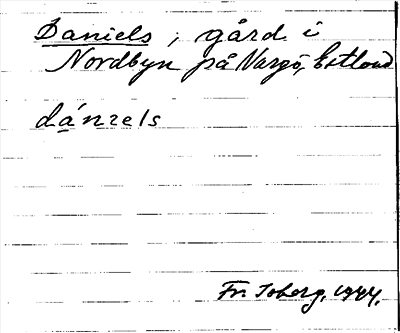 Daniels, gård i
Nordbyn på Nargö, Estland
dánɪels
Fr. Isberg, 1944.